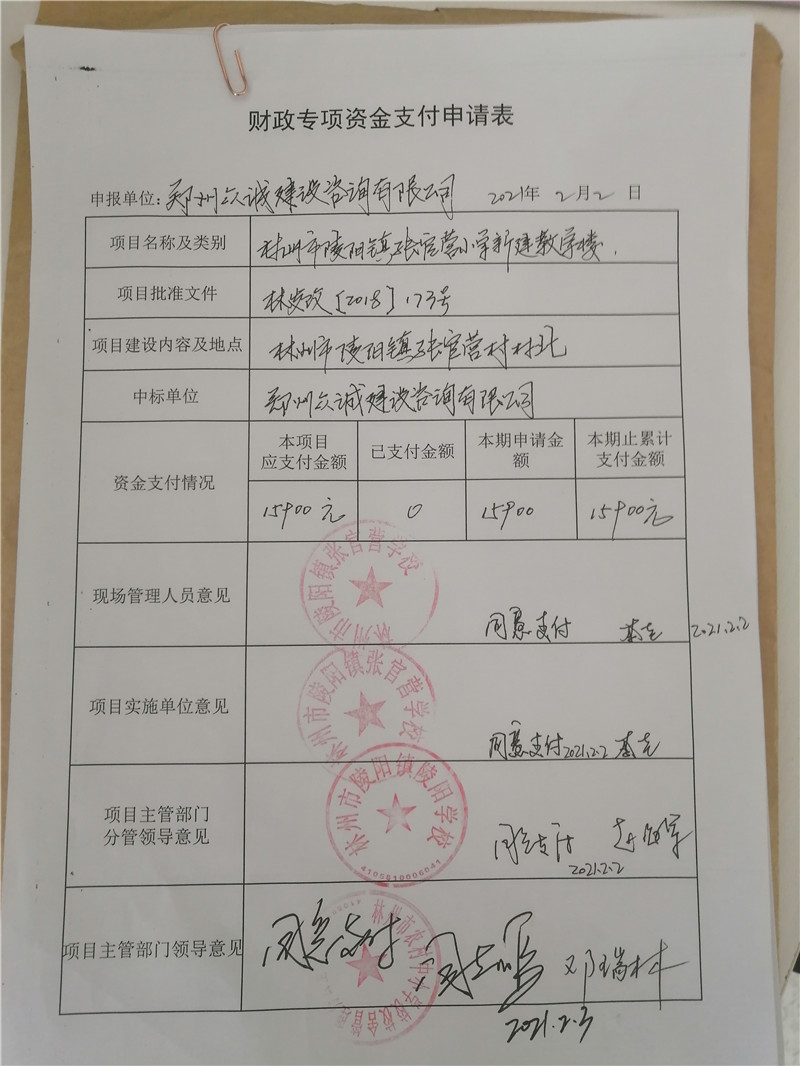 财政专项资金支付申请表
申报单位：郑州众诚建设咨询有限公司 2021年 2月2日
项目名称及类别 林州市陵阳镇张官营小学新建教学楼.
项目批准文件 林发改〔2018〕173号
项目建设内容及地点 林州市陵阳镇张官营村村北
中标单位 郑州众诚建设咨询有限公司
资金支付情况
本项目
应支付金额
已支付金额
本期申请金
额
本期止累计
支付金额
15900元 0 15900 15900元
林州市陵阳镇张官营学校
现场管理人员意见 同意支付 2021.2.2
林州市陵阳镇张官营学校
项目实施单位意见 同意支付 2021.2.2
林州市陵阳镇陵阳学校
4105810006041
项目主管部门
分管领导意见
同意支付
2021.2.2
项目主管部门领导意见 同意支付 邓瑞林
2021.2.3